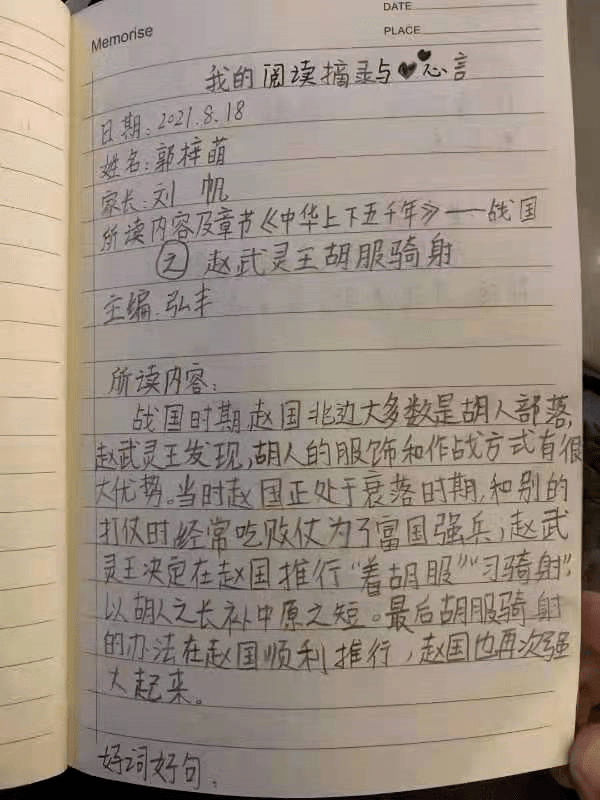 Memorise
DATE
PLACE
我的阅读摘录与心言
日期:2021.8.18
姓名:郭梓萌
家长:刘 帆
所读内容及章节《中华上下五千年》——战国
之 赵武灵王胡服骑射
主编:弘丰
所读内容:
战国时期,赵国北边大多数是胡人部落,
赵武灵王发现,胡人的服饰和作战方式有很
大优势。当时赵国正处于衰落时期,和别的
打仗时经常吃败仗为了富国强兵,赵武
灵王决定在赵国推行“着胡服”“习骑射”,
以胡人之长补中原之短。最后胡服骑射
的办法在赵国顺利推行,赵国也再次强
大起来。
好词好句: